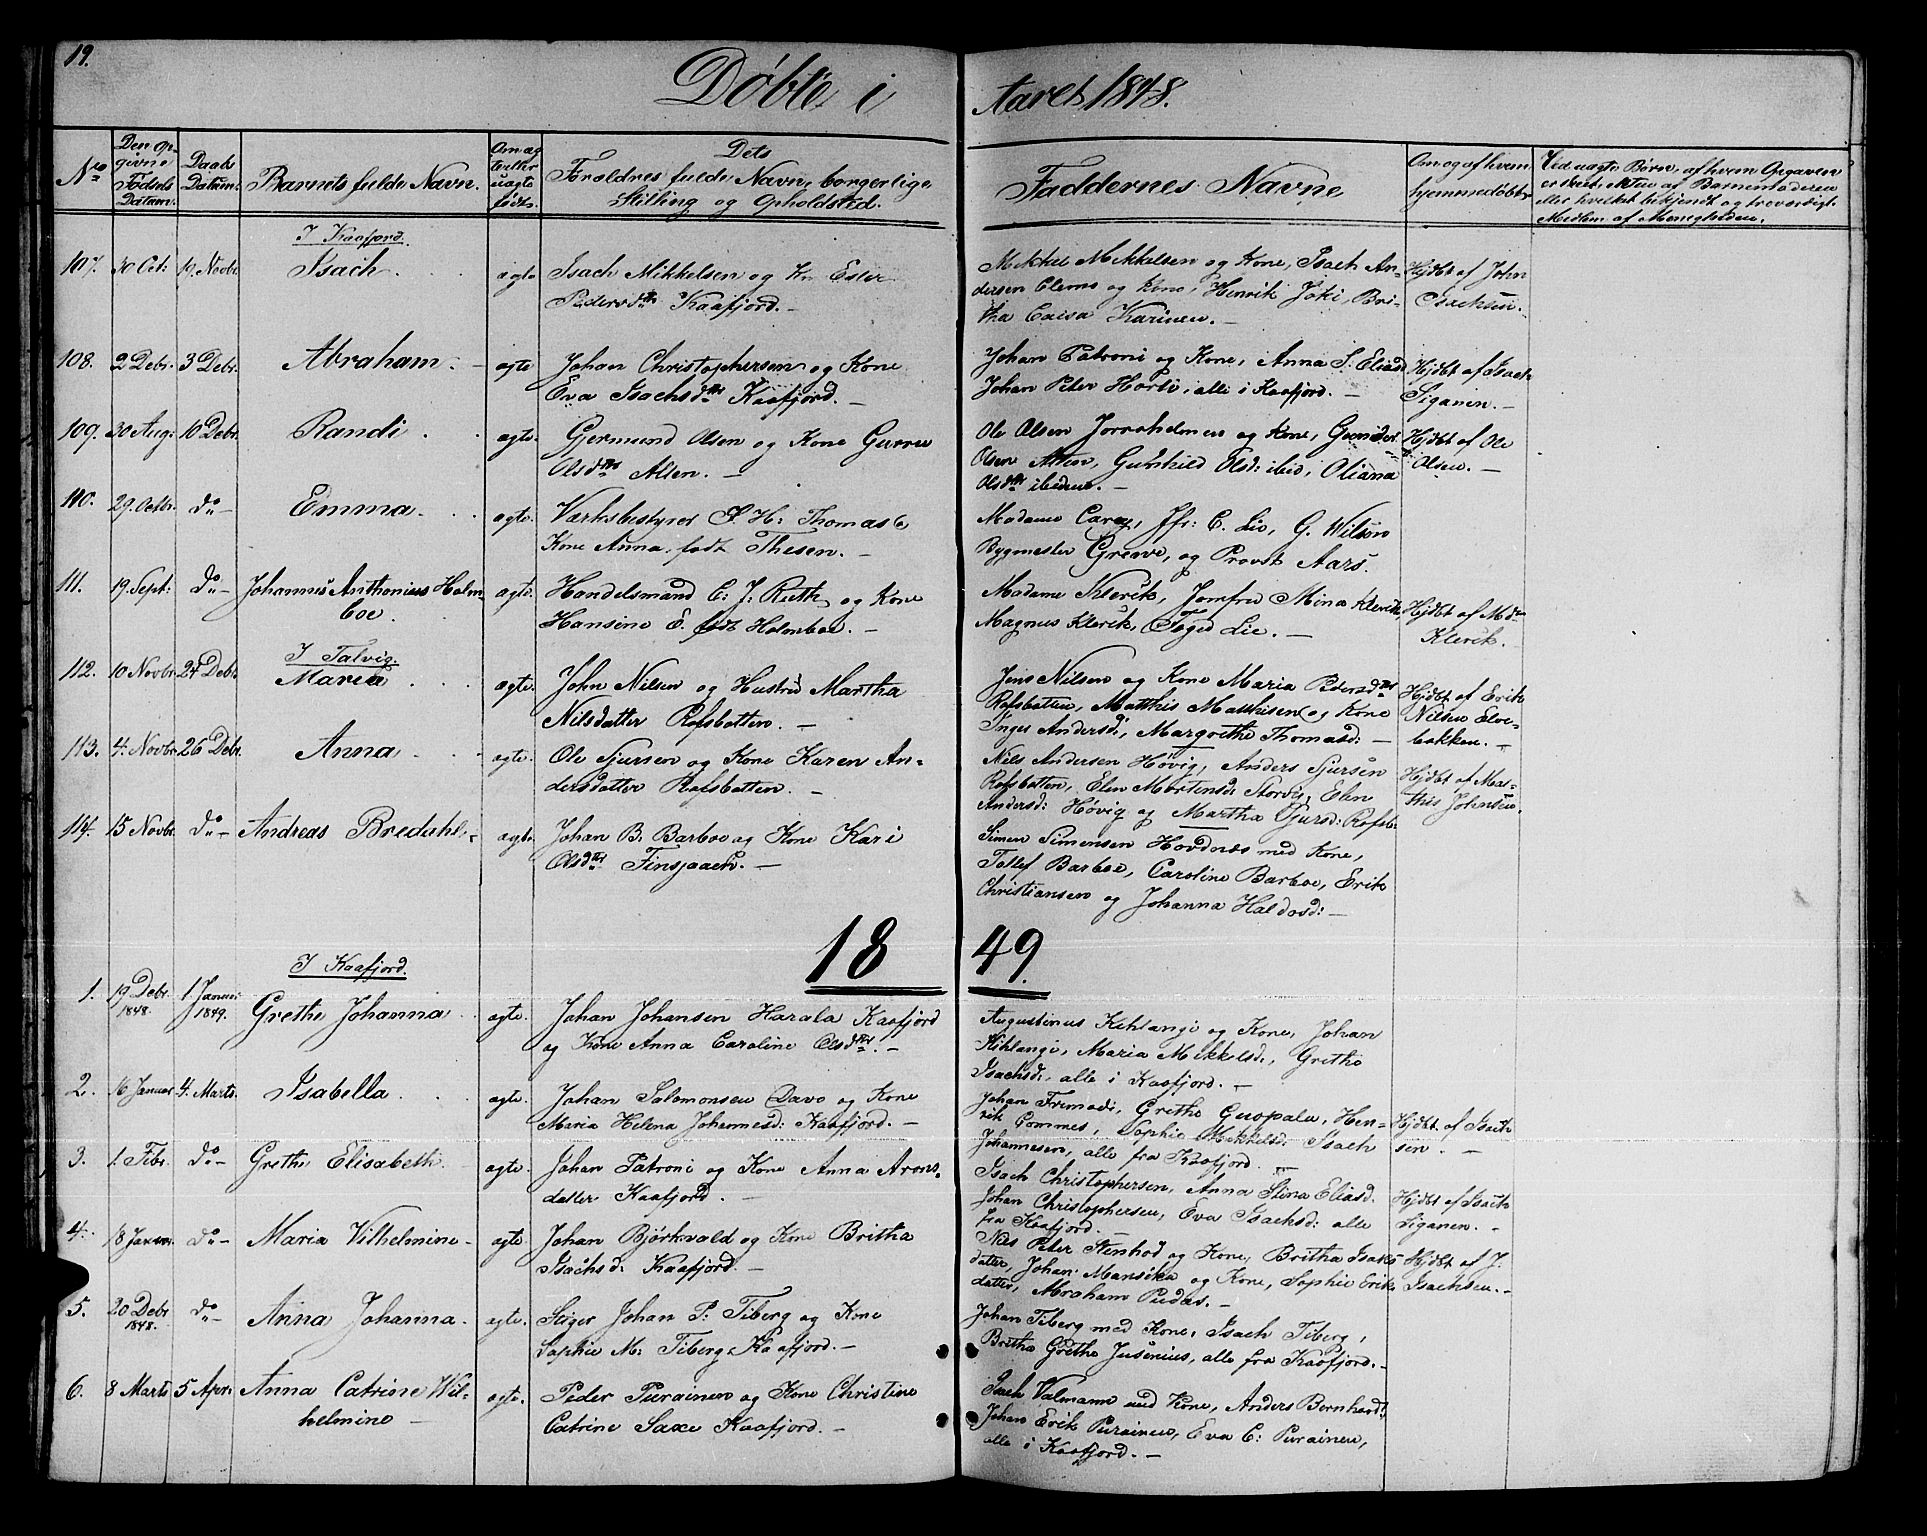 19.
Døbte i Aaret 1848.
No
Den Op-
givne
Fødsels
Datum.
Daabs
Datum.
Barnets fulde Navn.
Om æg
te eller
uægte
født.
Dets
Forældres fulde Navn, borgerlige
Stilling og Opholdsted.
Faddernes Navne
Om og af hvem
hjemmedøbt.
Ved uægte Børn, af hvem Opgaven
er skeet, enten af Barnemoderen
eller hvilket bekjendt og troværdigt
Medlem af Menigheden.
I Kaafjord.
107. 30 Oct: 19. Novbr Isach. ægte Isach Mikkelsen og Kn Ester
Pedersdtr Kaafjord. –
Mikkel Mikkelsen og Kone, Isach An-
dersen Clems og Kone, Henrik Joki, Bri-
tha Caisa Karinen. –
Hjdbt af John
Isachsen.
108. 2 Debr. 3 Debr. Abraham. – ægte Johan Christophersen og Kone
Eva Isachsdtr Kaafjord. –
Johan Patroni og Kone, Anna S. Eliasd
Johan Peter Horti, alle i Kaafjord. –
Hjdbt af Isach
Siganen. –
109. 30 Aug: 10 Debr. Randi. ægte. Gjermund Olsen og Kone Gurru
Olsdtr Alten. –
Ole Olsen Jorraholmen og Kone, Gunder
Olsen Alten, Gunhild Olsd: ibid, Oliana
Olsdtr ibidem. –
Hjdbt af Ole
Olsen. –
110. 29. Octbr. do – Emma. ægte. Værksbestyrer S. H: Thomas &
Kone Anna, født Thesen. –
Madame Carey, Jfr: C. Lie, G. Wilson
Bygmester Greave, og Provst Aars.
111. 19. Sept: do – Johannes Anthonius Holm-
boe. ægte. Handelsmand C: J: Ruth og Kone
Hansine E. født Holmboe. –
Madame Klerik, Jomfru Mina Klerik,
Magnus Klerik, Foged Lie. –
Hjdbt af Md.
Klerik. –
I Talvig.
112. 10 Novbr. 24 Debr. Maria. ægte. John Nilsen og Hustru Martha
Nilsdatter Rafsbotten. –
Jens Nilsen og Kone Maria Pedersdtr
Rafsbotten, Matthis Matthisen og Kone
Inger Andersd:, Margrethe Thomasd: –
Hjdbt af Erik
Nilsen Elve-
bakken. –
113. 4. Novbr. 26 Debr. Anna. ægte. Ole Sjursen og Kone Karen An-
dersdatter Rafsbotten. –
Nils Andersen Høvig, Anders Sjursen
Rafsbotten, Elen Mortensd: Storvig, Elen
Andersd: Høvig og Martha Sjursd: Rafsb.
Hjdbt af Mat-
this Johnsen.
114. 15 Novbr. do – Andreas Bredahl. – ægte Johan B. Barboe og Kone Kari
Olsdtr Finsjaaen. –
Simen Simensen Hovdnæs med Kone,
Tollef Barboe, Caroline Barboe, Erik
Christiansen og Johanna Haldosd: –
1849.
I Kaafjord.
1. 19 Debr. 1848. 1 Januar 1849. Grethe Johanna. ægte. Johan Johansen Harala Kaafjord
og Kone Anna Caroline Olsdtr. –
Augustinus Kihlangi og Kone, Johan
Kihlangi, Maria Mikkelsd:, Grethe
Isachsd:, alle i Kaafjord. –
2. 16 Januar 4. Marts. Isabella. ægte. Johan Salomonsen Davo og Kone
Maria Helena Johannesd: Kaafjord. –
Johan Fremadi, Grethe Guopala, Hen-
rik Pommes, Sophie Mikkelsd: Isach
Johannesen, alle fra Kaafjord. –
Hjdbt. af Isach-
sen. –
3. 1. Febr. do – Grethe Elisabeth. ægte. Johan Patroni og Kone Anna Arons-
datter Kaafjord. –
Isach Christophersen, Anna Stina Eliasd.
Johan Christophersen, Eva Isachsd: alle
fra Kaafjord. –
Hjdbt af Isach
Siganen. –
4. 18 Januar. do – Maria Vilhelmine – ægte. Johan Bjørkvald og Kone Britha
Isachsd: Kaafjord. –
Nils Peter Stenhod og Kone, Britha Isaks-
datter, Johan Mansika og Kone, Sophie Eriks-
datter, Abraham Pudas. –
Hjdbt af J.
Isachsen. –
5. 20 Debr. 1848. do – Anna Johanna. ægte. Stiger Johan P: Tiberg og Kone
Sophie M: Tiberg, Kaafjord. –
Johan Tiberg med Kone, Isach Tiberg,
Britha Grethe Jusenius, alle fra Kaafjord. –
6. 8 Marts 5 Apr: Anna Catrine Wil-
helmine – ægte. Peder Purainen og Kone Christine
Catrine Saxe Kaafjord. –
Isach Valmann med Kone, Anders Bernhard
Johan Erik Purainen, Eva C: Purainen,
alle i Kaafjord. –